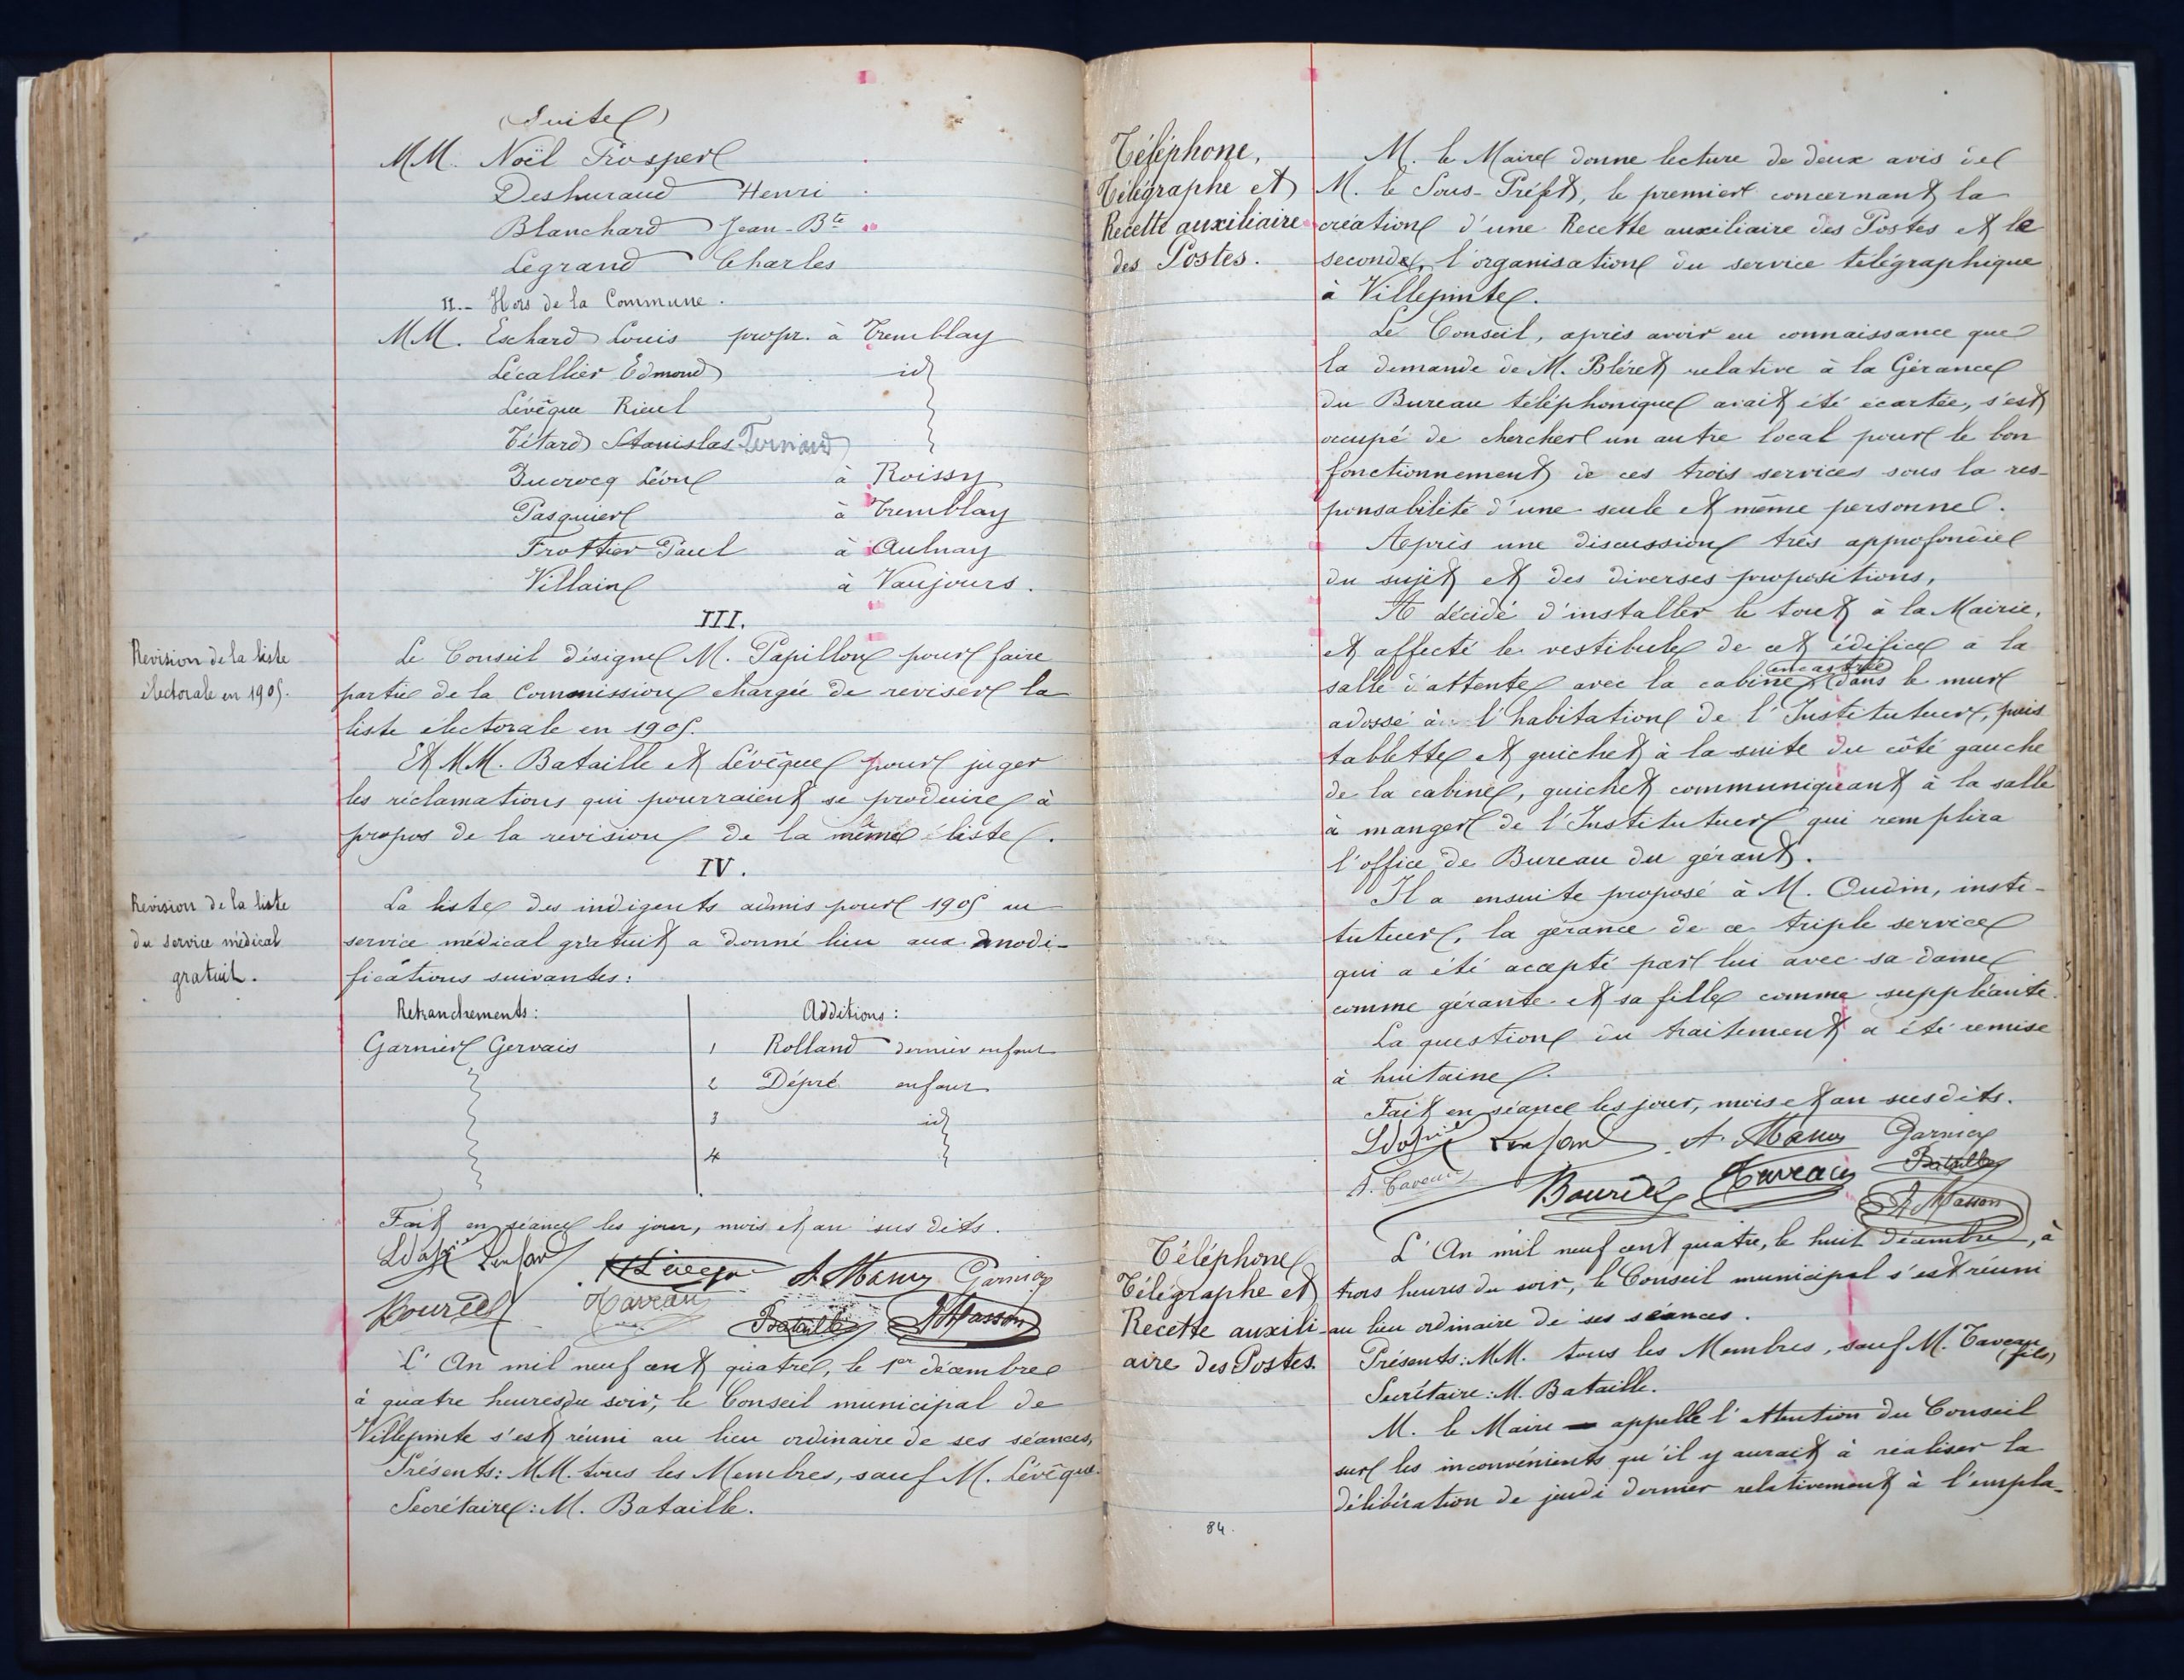 (Suite)
MM. Noël Prosper
Deshuraud Henri
Blanchard Jean-Bte
Legrand Charles
II.- Hors de la Commune.
MM. Eschard Louis propr. à Tremblay
Lécallier Edmond id
Lévêque Rieul
Tétard Stanislas Fernand
Ducrocq Léon à Roissy
Pasquier à Tremblay
Frottier Paul à Aulnay
Villain à Vaujours.
III.
Revision de la liste
électorale en 1905.
Le Conseil désigne M. Papillon pour faire
partie de la Commission chargée de reviser la
liste électorale en 1905.
Et MM. Bataille et Lévêque pour juger
les réclamations qui pourraient se produire à
propos de la revision de la même liste.
IV.
Revision de la liste
du service médical
gratuit.
La liste des indigents admis pour 1905 au
service médical gratuit a donné lieu aux modi-
fications suivantes:
Retranchements: Additions:
Garnier Gervais 1 Rolland dernier enfant
2 Dépré enfant
3 id
4
Fait en séance les jour, mois et an sus dits.
A Masson Garnier
Bourdel Taveau Bataille A Masson
L'An mil neuf cent quatre, le 1er décembre
à quatre heures du soir, le Conseil municipal de
Villepinte s'est réuni au lieu ordinaire de ses séances,
Présents: MM. tous les Membres, sauf M. Lévêque.
Secrétaire: M. Bataille.
Téléphone,
Télégraphe et
Recette auxiliaire
des Postes.
M. le Maire donne lecture de deux avis de
M. le Sous-Préfet, le premier concernant la
création d'une Recette auxiliaire des Postes et le
second, l'organisation du service télégraphique
à Villepinte.
Le Conseil, après avoir eu connaissance que
la demande de M. Bléret relative à la Gérance
du Bureau téléphonique avait été écartée, s'est
occupé de chercher un autre local pour le bon
fonctionnement de ces trois services sous la res-
ponsabilité d'une seule et même personne.
Après une discussion très approfondie
du sujet et des diverses propositions,
A décidé d'installer le tout à la Mairie,
et affecté le vestibule de cet édifice à la
salle d'attente avec la cabine encastrée dans le mur
adossé à l'habitation de l'Instituteur, puis
tablette et guichet à la suite du côté gauche
de la cabine, guichet communiquant à la salle
à manger de l'Instituteur qui remplira
l'office de Bureau du gérant.
Il a ensuite proposé à M. Oudin, insti-
tuteur, la gérance de ce triple service
qui a été accepté par lui avec sa dame
comme gérante et sa fille comme suppléante.
La question du traitement a été remise
à huitaine.
Fait en séance les jour, mois et an susdits.
Garnier
A. Taveau Bourdel Taveau Bataille
A Masson
Téléphone
Télégraphe et
Recette auxili-
aire des Postes.
L'An mil neuf cent quatre, le huit décembre, à
trois heures du soir, le Conseil municipal s'est réuni
au lieu ordinaire de ses séances.
Présents: MM. tous les Membres, sauf M. Taveau (fils)
Secrétaire: M. Bataille.
M. le Maire appelle l'attention du Conseil
sur les inconvénients qu'il y aurait à réaliser la
délibération de jeudi dernier relativement à l'empla-
84.